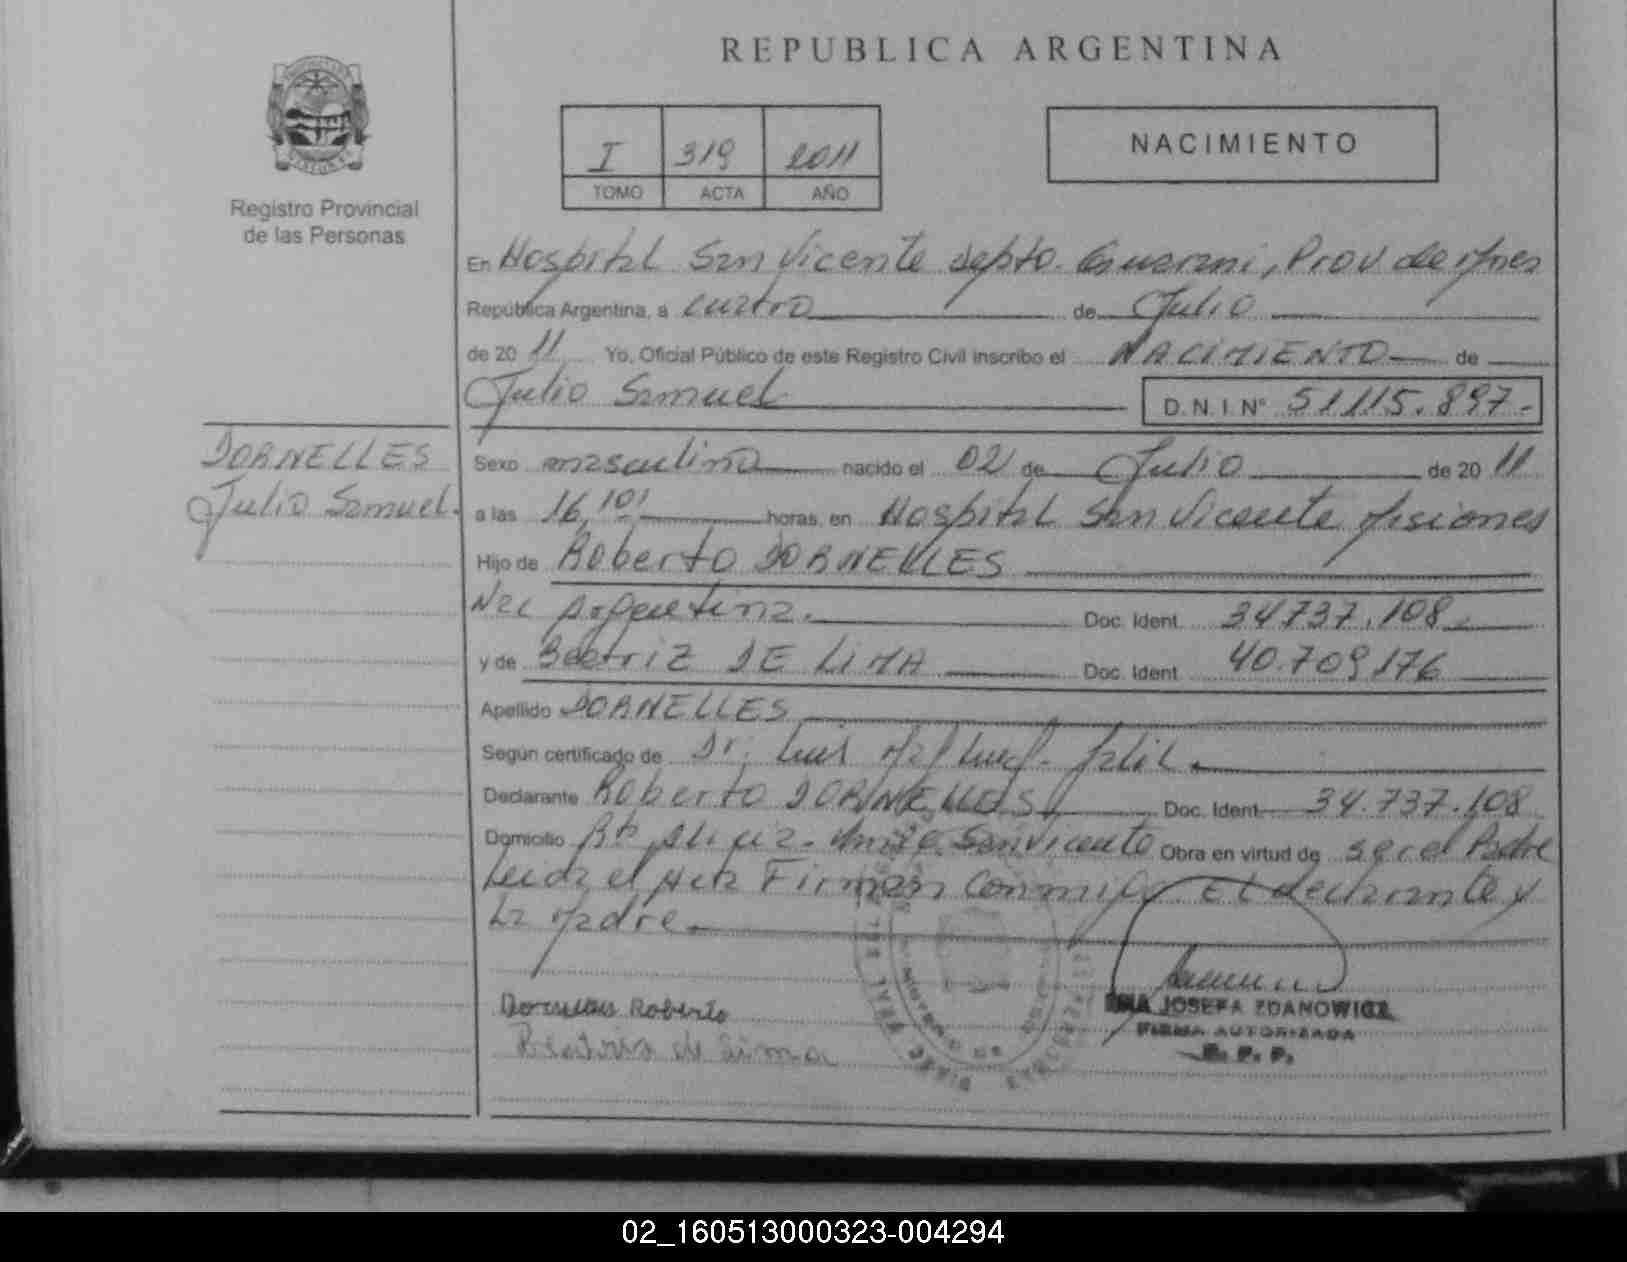 REPUBLICA ARGENTINA
I 319 2011
TOMO ACTA AÑO
NACIMIENTO
Registro Provincial
de las Personas
En Hospital San Vicente depto. Guarani, Prov de
República Argentina, a cuatro de Julio
de 2011 Yo, Oficial Público de este Registro Civil inscribo el NACIMIENTO de
Julio Samuel D.N.I. Nº 51.115.897.-
DORNELLES
Julio Samuel.
Sexo masculino nacido el 02 de Julio de 2011
a las 16,10 horas, en Hospital San Vicente Misiones
Hijo de Roberto DORNELLES
Nac Argentina. Doc. Ident. 34737.108
y de Beatriz DE LIMA Doc. Ident. 40.709176
Apellido DORNELLES
Según certificado de Dr. Luis
Declarante Roberto DORNELLES Doc. Ident. 34.737.108
Domicilio San Vicente Obra en virtud de ser el Padre
Leida el Acta Firman Conmigo El declarante y
La Madre.
Roberto
Beatriz de Lima
JOSEFA ZDANOWICZ
FIRMA AUTORIZADA
R. P. P.
02_160513000323-004294